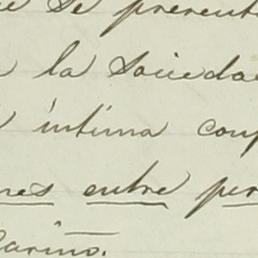 se presente
la Sociedad
íntima conf
nes entre per
Cariño.